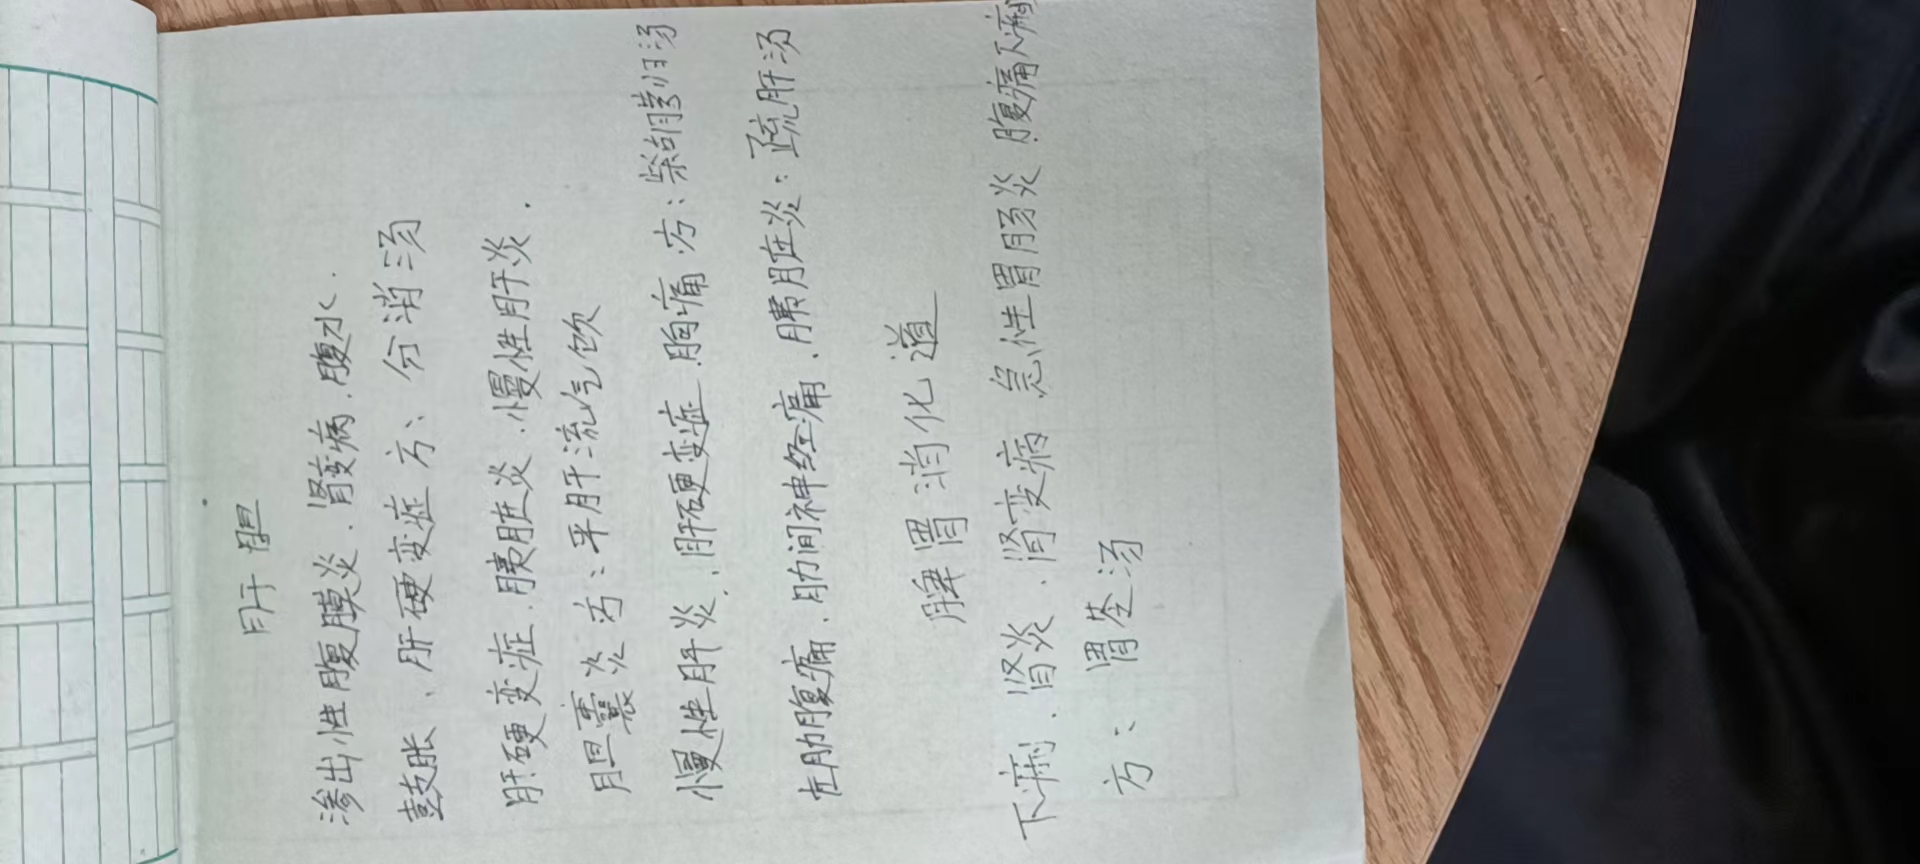 肝胆
渗出性腹膜炎、肾变病、腹水.
鼓胀、肝硬变症 方、分消汤
肝硬变症、胰脏炎、慢性肝炎.
胆囊炎 方：平肝流气饮
慢性肝炎、肝硬变症、胸痛 方：柴胡 归汤
左肋腹痛、肋间神经痛、胰脏炎：疏肝汤
脾胃消化道
下痢、肾炎、肾变病 急性胃肠炎 腹痛下痢
方：胃苓汤